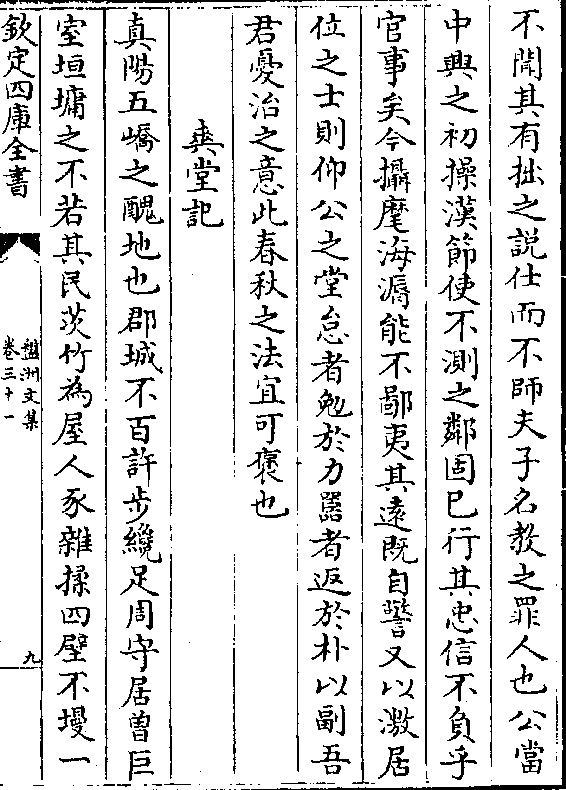 不聞其有拙之説仕而不師夫子名教之罪人也公當
中興之初操漢節使不測之鄰固已行其忠信不負乎
官事矣今攝麾海濵能不鄙夷其遠既自警又以激居
位之士則仰公之堂怠者勉於力嚚者返於朴以副吾
君憂治之意此春秋之法宜可褒也
爽堂記
真陽五嶠之醜地也郡城不百許步纔足周守居曽巨
室垣墉之不若其民茨竹為屋人豕雜揉四壁不墁一
欽定四庫全書
盤洲文集
卷三十一
九